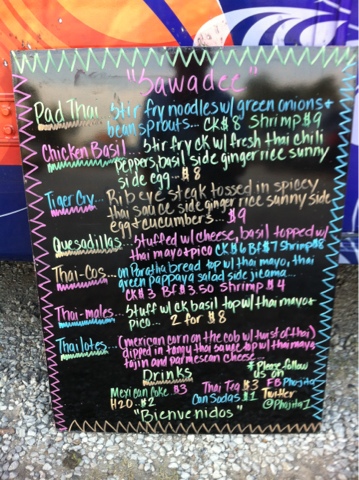 "Sawadee"
Pad Thai Stir fry noodles w/ green onions &
bean sprouts... CK $8 Shrimp $9
Chicken Basil... Stir fry CK w/ fresh thai chili
peppers, basil side ginger rice sunny
side egg... $8
Tiger Cry... Rib eye steak tossed in spicey
thai sauce side ginger rice sunny side
egg & cucumbers... $9
Quesadillas... Stuffed w/ cheese, basil topped w/
thai mayo & pico CK $6 Bf $7 Shrimp $8
Thai-Cos... on Paratha bread top w/ thai mayo, thai
green pappaya salad side jicama...
CK $3 Bf $3.50 Shrimp $4
Thai-males... Stuff w/ CK basil top w/ thai mayo &
pico... 2 for $8
Thailotes... (mexican corn on the cob w/ twist of thai)
dipped in tangy thai sauce top w/ thai mayo,
tajin and parmesan cheese...
Drinks
Mexican Coke $3 Thai Tea $3
H2O... $2 Can Sodas $1
"Bienvenidos"
* Please follow
us on
FB Phojita
Twitter
@Phojita1